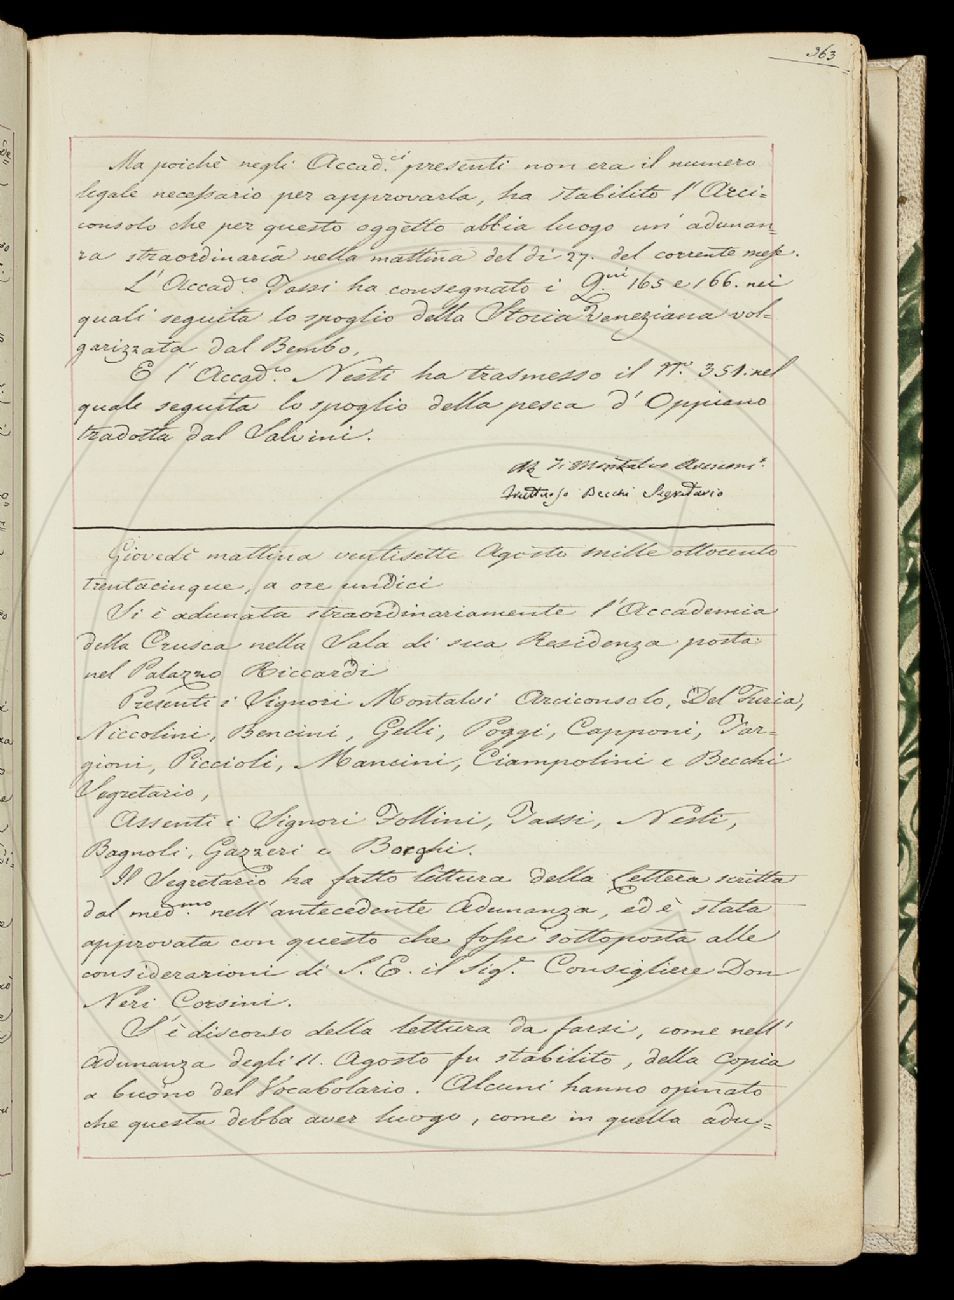 363
Ma poichè negli Accad.ci presenti non era il numero
legale necessario per approvarla, ha stabilito l'Arci=
consolo che per questo oggetto abbia luogo un'adunan=
za straordinaria nella mattina del dì 27. del corrente mese.
L'Accad.co Tassi ha consegnato i Q.rni 165 e 166. nei
quali seguita lo spoglio della Storia Veneziana vol=
garizzata dal Bembo,
E l'Accad.co Nesti ha trasmesso il N.o 351. nel
quale seguita lo spoglio della pesca d'Oppiano
tradotta dal Salvini.
di Montalvo Arcicons.o
Fruttuoso Becchi Segretario
Giovedì mattina ventisette Agosto mille ottocento
trentacinque, a ore undici
Si è adunata straordinariamente l'Accademia
della Crusca nella Sala di sua Residenza posta
nel Palazzo Riccardi
Presenti i Signori Montalvi Arciconsolo, Del Furia,
Niccolini, Bencini, Gelli, Poggi, Capponi, Tar=
gioni, Piccioli, Mancini, Ciampolini e Becchi
Segretario,
Assenti i Signori Follini, Tassi, Nesti,
Bagnoli, Gazzeri e Borghi.
Il Segretario ha fatto lettura della Lettera scritta
dal med.mo nell'antecedente Adunanza, ed è stata
approvata con questo che fosse sottoposta alle
considerazioni di S. E. il Sig.r Consigliere Don
Neri Corsini.
S'è discorso della lettura da farsi, come nell'
Adunanza degli 11. Agosto fu stabilito, della Copia
a buono del Vocabolario. Alcuni hanno opinato
che questa debba aver luogo, come in quella adu=